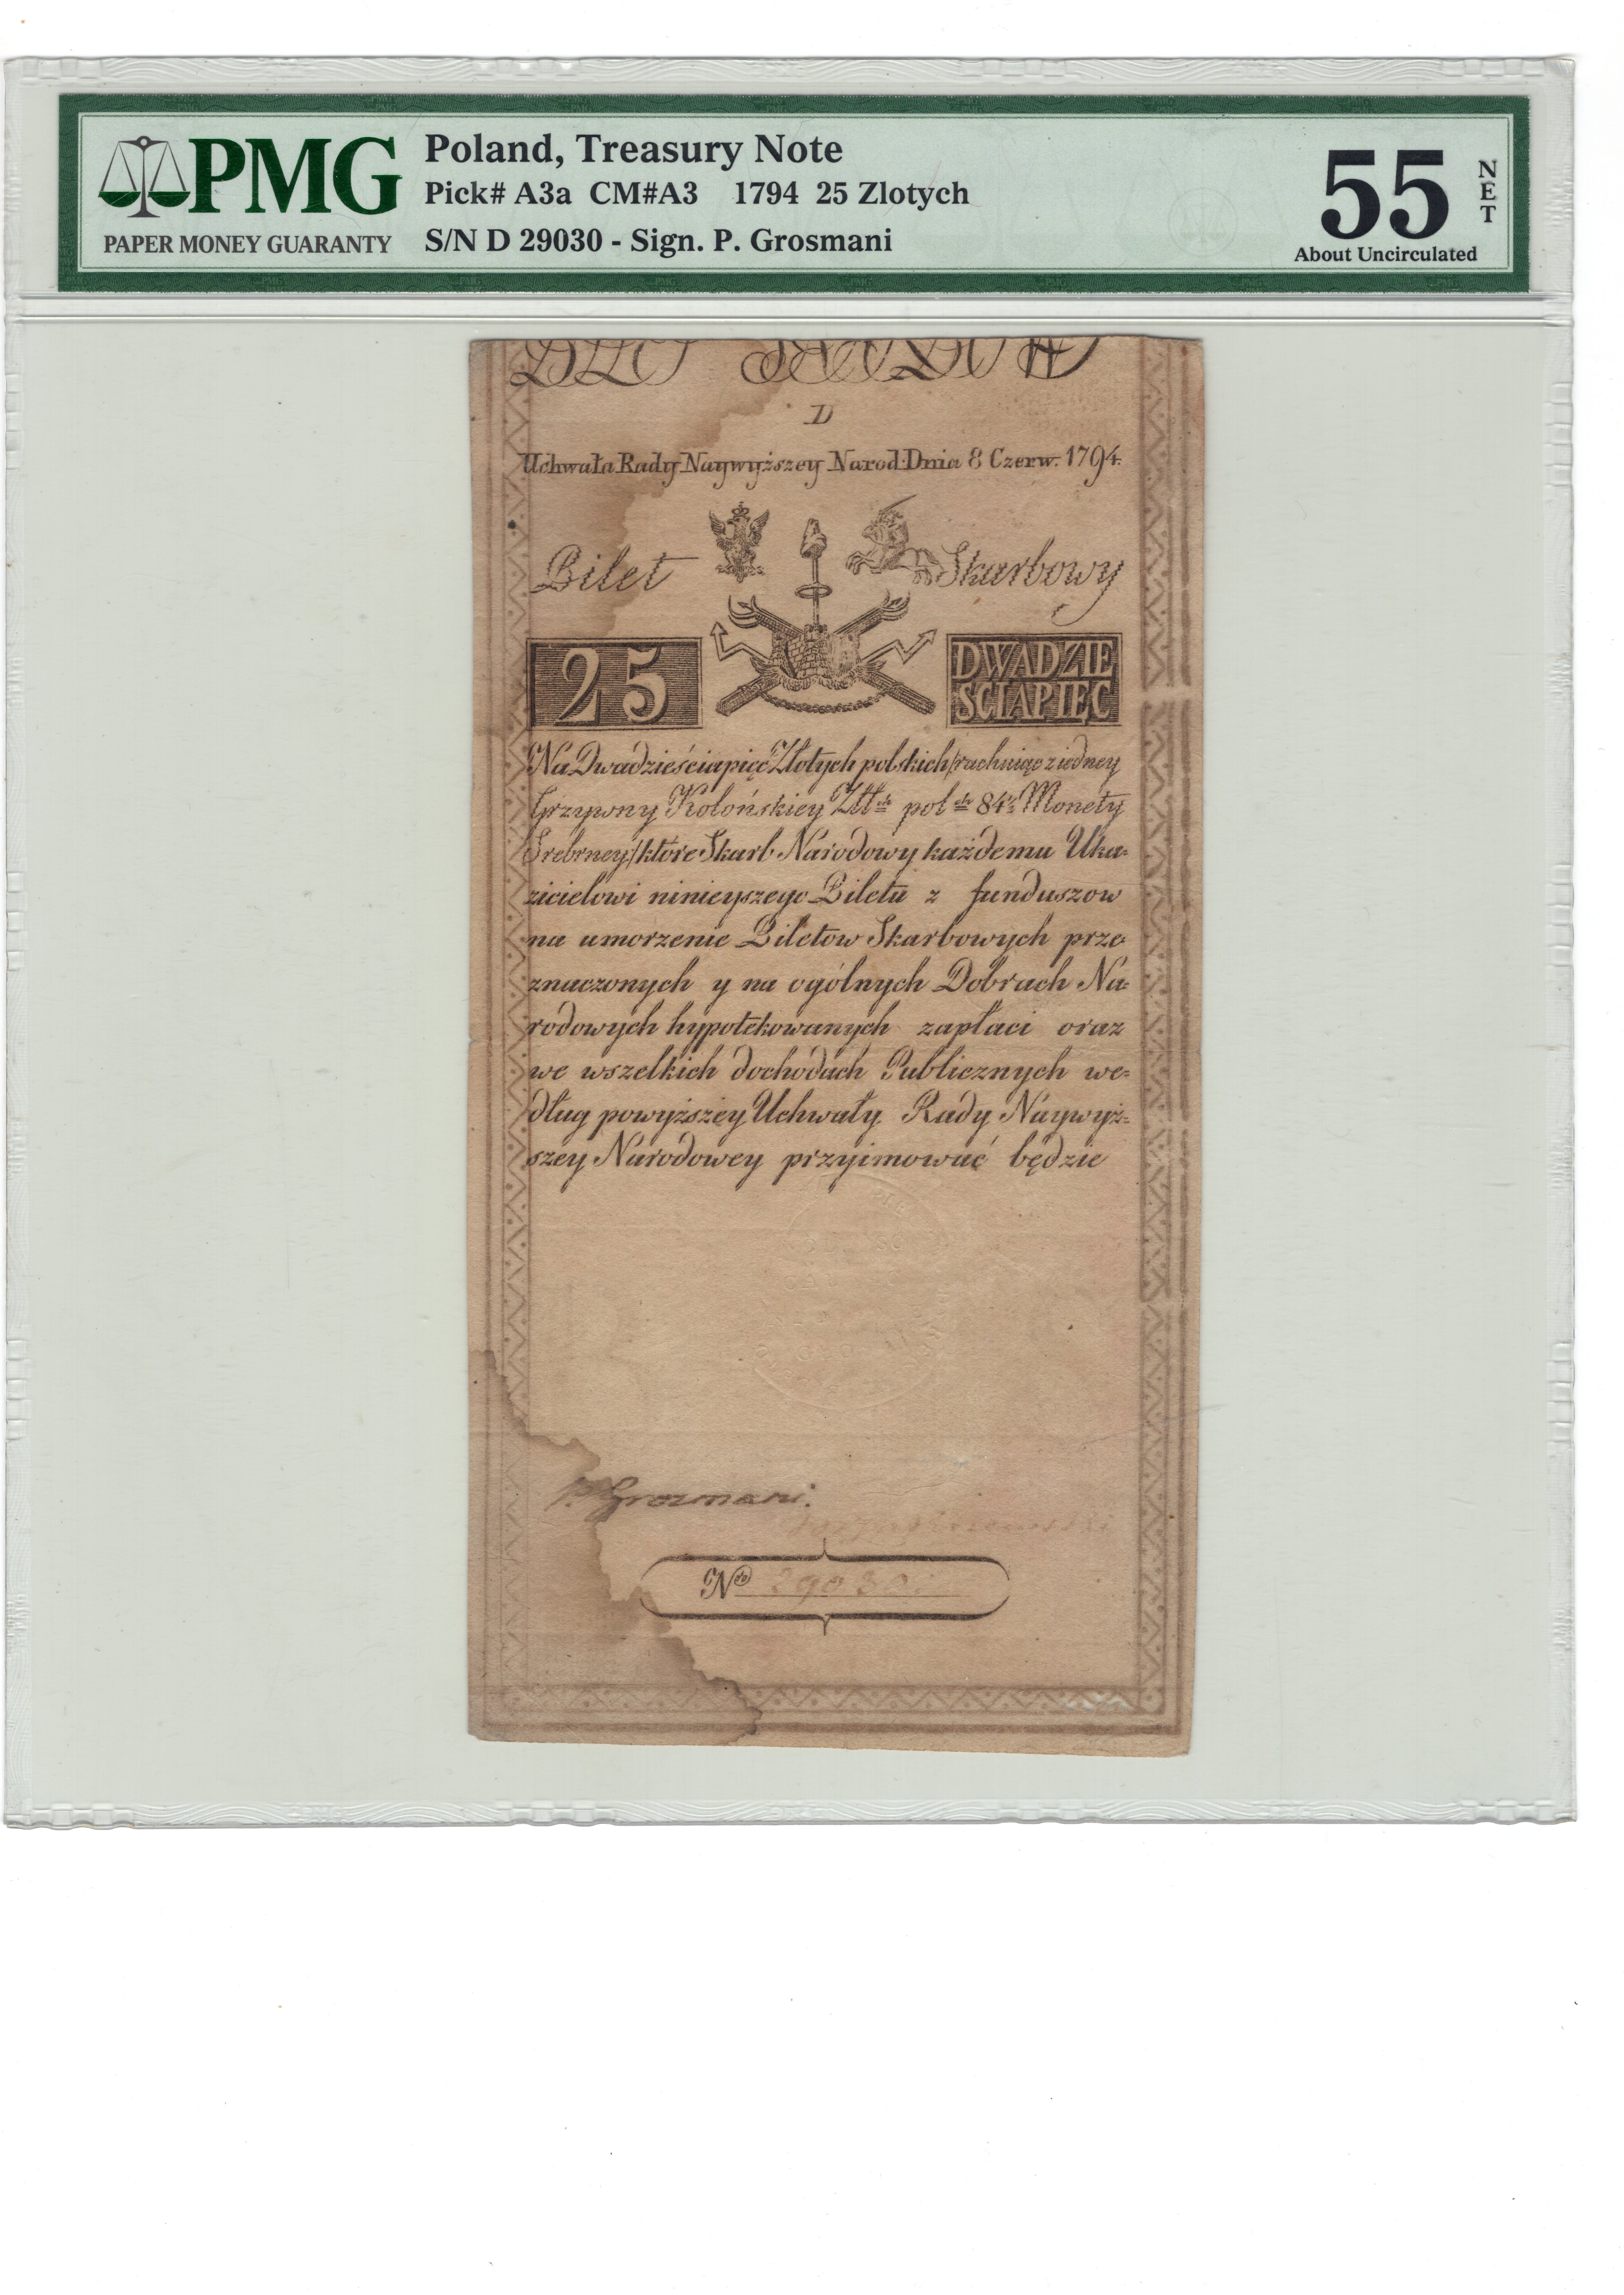 PMG
PAPER MONEY GUARANTY
Poland, Treasury Note
Pick# A3a CM#A3 1794 25 Zlotych
S/N D 29030 - Sign. P. Grosmani
55
NET
About Uncirculated
D
Uchwała Rady Naywyższey Narod: Dnia 8 Czerw: 1794.
Bilet Skarbowy
25
DWADZIE
SCIAPIĘC
Na Dwadzieściapięć Złotych polskich/rachuiąc z iedney
Grzywny Kolońskiey Złł. pol. 84½ Monety
Srebrney/które Skarb Narodowy każdemu Uka=
zicielowi ninieyszego Biletu z funduszow
na umorzenie Biletow Skarbowych prze=
znaczonych y na ogólnych Dobrach Na=
rodowych hypotekowanych zapłaci oraz
we wszelkich dochodach Publicznych we=
dług powyższey Uchwały Rady Naywyż=
szey Narodowey przyimować będzie
P. Grosmani.
No 29030.